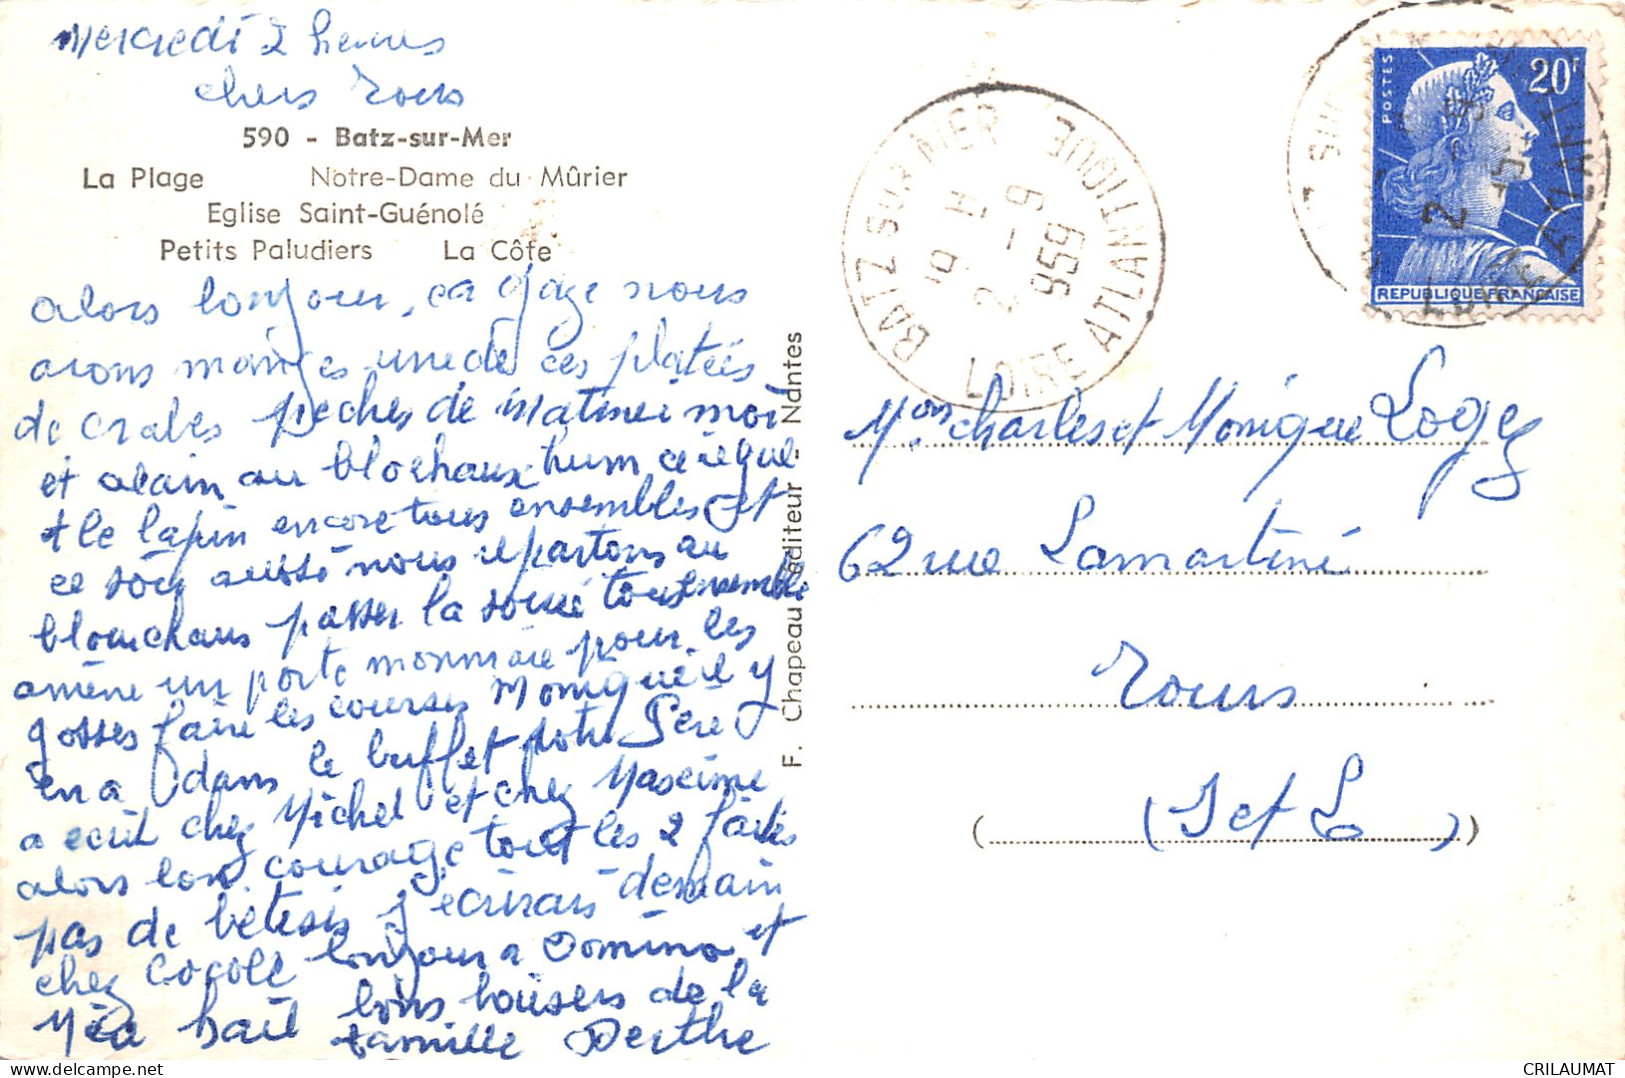 Mercredi 2 heures
chers Tous
590 - Batz-sur-Mer
La Plage Notre-Dame du Mûrier
Eglise Saint-Guénolé
Petits Paludiers La Côte
alors bonjour, ca gaze nous
avons manges une de ces platées
de crabes pèches de matinée moi
et alain au blochaux hum ce règal
et le lapin encore tous ensembles et
ce soir aussi nous repartons au
blouchaus passer la soirée tous ensemble
amène un porte monnaie pour les
gosses faire les courses Monique il y
en a dans le buffet votre Père
a ecrit chez Michel et chez Maxime
alors bon courage tout les 2 faites
pas de bétisis j ecrirais demain
chez Cocole bonjour a Domino et
bons baisers de la
famille Berthe
F. Chapeau éditeur - Nantes
BATZ SUR MER
19 H
2 - 9
959
LOIRE ATLANTIQUE
POSTES
20F
REPUBLIQUE FRANÇAISE
Mrons Charles et Monique Logez
62 rue Lamartine
Tours
(I et L)
CRILAUMAT